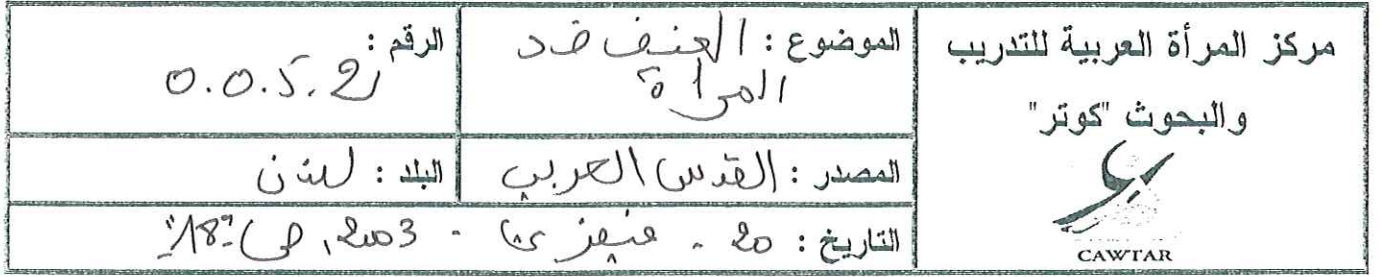 مركز المرأة العربية للتدريب
والبحوث "كوتر"
CAWTAR
الموضوع : العنف ضد
المرأة
الرقم :
0.0.5.2
المصدر : القدس العربي
البلد : لندن
التاريخ : 20 - فيفري - 2003, ص "18"